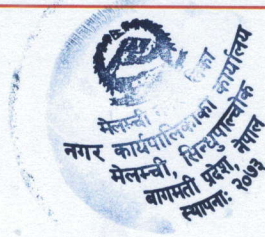 मेलम्ची
नगर कार्यपालिकाको कार्यालय
मेलम्ची, सिन्धुपाल्चोक
बागमती प्रदेश, नेपाल
स्थापनाः २०७३